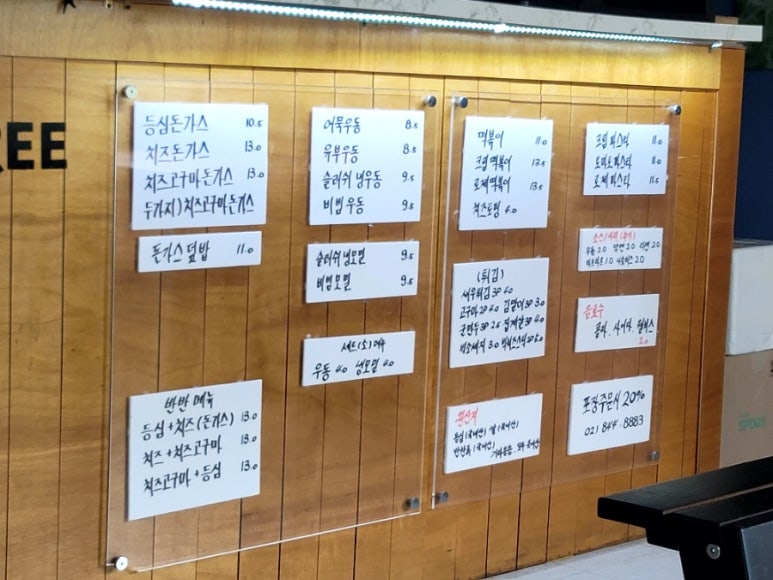 REE
등심돈가스 10.5
치즈돈가스 13.0
치즈고구마돈가스 13.0
두가지) 치즈고구마돈가스
돈가스 덮밥 11.0
반반 메뉴
등심+치즈(돈가스) 13.0
치즈+치즈고구마 13.0
치즈고구마+등심 13.0
어묵우동 8.5
유부우동 8.5
슬러쉬 냉우동 9.5
비빔우동 9.5
슬러쉬 냉모밀 9.5
비빔모밀 9.5
세트(소)메뉴
우동 4.0 냉모밀 4.0
떡볶이 11.0
크림떡볶이 13.5
로제떡볶이 13.5
치즈토핑 4.0
(튀김)
새우튀김 3P 4.0
고구마 2P 4.0 김말이 3P 3.0
군만두 3P 2.5 집게살 3P 4.0
3.0 치즈스틱 2P 5.0
원산지
등심(국내산) 쌀(국내산)
크림파스타 11.0
토마토파스타 11.0
로제파스타 11.5
우동 2.0 당면 2.0 라면 2.0
음료수
콜라. 사이다. 웰치스
2.0
포장주문시 20%
02) 844.8883